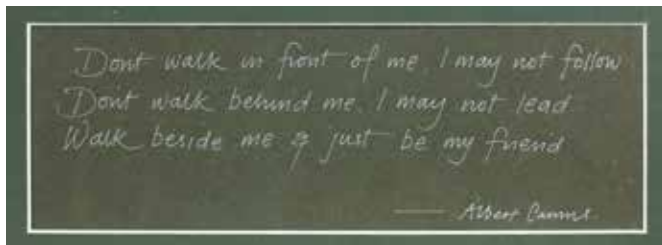 Dont walk in front of me. I may not follow
Don't walk behind me. I may not lead
Walk beside me & just be my friend
—— Albert Camus.